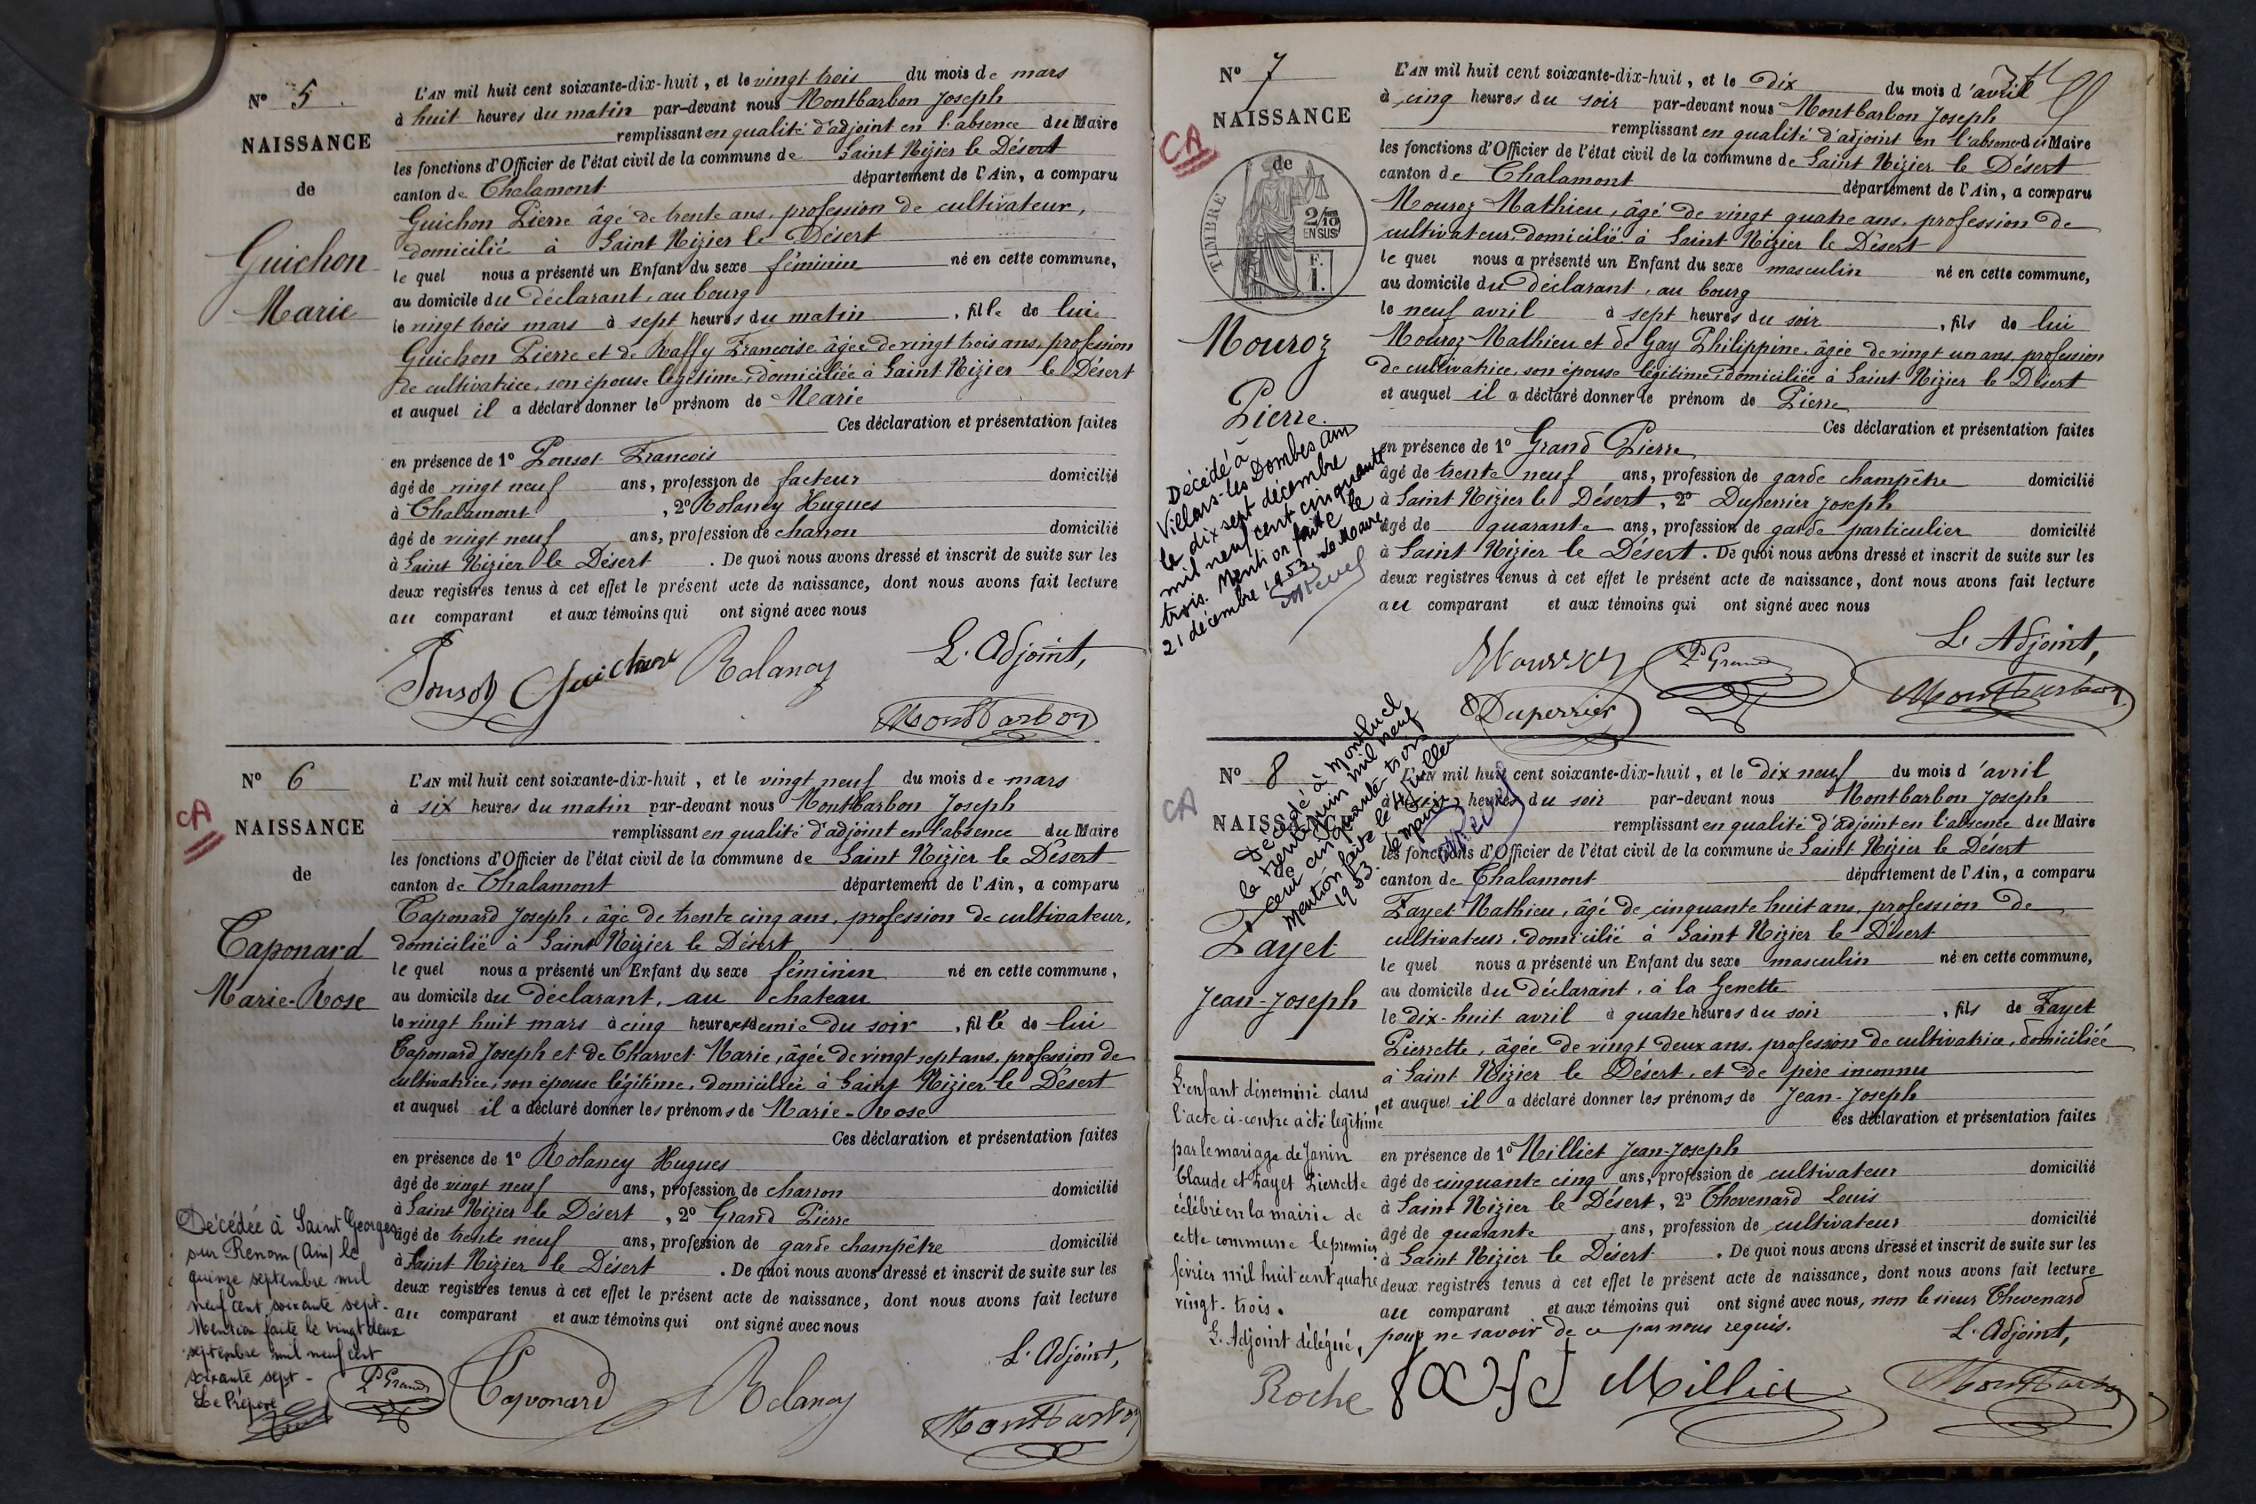 N° 5
NAISSANCE
de
Guichon
Marie
L'AN mil huit cent soixante-dix-huit, et le vingt trois du mois de mars
à huit heures du matin par-devant nous Montbarbon Joseph
remplissant en qualité d'adjoint en l'absence du Maire
les fonctions d'Officier de l'état civil de la commune de Saint Nizier le Désert
canton de Chalamont département de l'Ain, a comparu
Guichon Pierre âgé de trente ans, profession de cultivateur,
domicilié à Saint Nizier le Désert
le quel nous a présenté un Enfant du sexe féminin né en cette commune,
au domicile du déclarant, au bourg
le vingt trois mars à sept heures du matin, fille de lui
Guichon Pierre et de Raffy Françoise âgée de vingt trois ans, profession
de cultivatrice, son épouse légitime, domiciliée à Saint Nizier le Désert
et auquel il a déclaré donner le prénom de Marie
Ces déclaration et présentation faites
en présence de 1° Ponsot François
âgé de vingt neuf ans, profession de facteur domicilié
à Chalamont, 2° Rolancy Hugues
âgé de vingt neuf ans, profession de charron domicilié
à Saint Nizier le Désert. De quoi nous avons dressé et inscrit de suite sur les
deux registres tenus à cet effet le présent acte de naissance, dont nous avons fait lecture
au comparant et aux témoins qui ont signé avec nous
L'Adjoint,
Ponsot Guichon Rolancy
Montbarbon
N° 6
CA
NAISSANCE
de
Caponard
Marie-Rose
L'AN mil huit cent soixante-dix-huit, et le vingt neuf du mois de mars
à six heures du matin par-devant nous Montbarbon Joseph
remplissant en qualité d'adjoint en l'absence du Maire
les fonctions d'Officier de l'état civil de la commune de Saint Nizier le Désert
canton de Chalamont département de l'Ain, a comparu
Caponard Joseph, âgé de trente cinq ans, profession de cultivateur,
domicilié à Saint Nizier le Désert
le quel nous a présenté un Enfant du sexe féminin né en cette commune,
au domicile du déclarant, au chateau
le vingt huit mars à cinq heures et demie du soir, fille de lui
Caponard Joseph et de Charvet Marie, âgée de vingt sept ans, profession de
cultivatrice, son épouse légitime, domiciliée à Saint Nizier le Désert
et auquel il a déclaré donner les prénoms de Marie-Rose
Ces déclaration et présentation faites
en présence de 1° Rolancy Hugues
âgé de vingt neuf ans, profession de charron domicilié
à Saint Nizier le Désert, 2° Grand Pierre
âgé de trente neuf ans, profession de garde champêtre domicilié
à Saint Nizier le Désert. De quoi nous avons dressé et inscrit de suite sur les
deux registres tenus à cet effet le présent acte de naissance, dont nous avons fait lecture
au comparant et aux témoins qui ont signé avec nous
Décédée à Saint Georges
sur Renom (Ain) le
quinze septembre mil
neuf cent soixante sept.
Mention faite le vingt deux
septembre mil neuf cent
soixante sept.
Le Préposé
L'Adjoint,
P. Grand Caponard Rolancy
Montbarbon
N° 7
CA
NAISSANCE
de
TIMBRE
2/10
EN SUS
F.
1.
Mouroz
Pierre
Décédé à
Villars-les Dombes Ain
le dix sept décembre
mil neuf cent cinquante
trois. Mention faite le
21 décembre 1953. Le Maire
L'AN mil huit cent soixante-dix-huit, et le dix du mois d'avril
à cinq heures du soir par-devant nous Montbarbon Joseph
remplissant en qualité d'adjoint en l'absence du Maire
les fonctions d'Officier de l'état civil de la commune de Saint Nizier le Désert
canton de Chalamont département de l'Ain, a comparu
Mouroz Mathieu, âgé de vingt quatre ans, profession de
cultivateur, domicilié à Saint Nizier le Désert
le quel nous a présenté un Enfant du sexe masculin né en cette commune,
au domicile du déclarant, au bourg
le neuf avril à sept heures du soir, fils de lui
Mouroz Mathieu et de Gay Philippine, âgée de vingt un ans, profession
de cultivatrice, son épouse légitime, domiciliée à Saint Nizier le Désert
et auquel il a déclaré donner le prénom de Pierre
Ces déclaration et présentation faites
en présence de 1° Grand Pierre
âgé de trente neuf ans, profession de garde champêtre domicilié
à Saint Nizier le Désert, 2° Duperrier Joseph
âgé de quarante ans, profession de garde particulier domicilié
à Saint Nizier le Désert. De quoi nous avons dressé et inscrit de suite sur les
deux registres tenus à cet effet le présent acte de naissance, dont nous avons fait lecture
au comparant et aux témoins qui ont signé avec nous
Le Adjoint,
Mouroz P. Grand
Duperrier Montbarbon
N° 8
CA
NAISSANCE
Décédé à Montluel
le trente juin mil neuf
cent cinquante trois
Mention faite le 4 juillet
1953. le Maire
Fayet
Jean-Joseph
L'AN mil huit cent soixante-dix-huit, et le dix neuf du mois d'avril
heures du soir par-devant nous Montbarbon Joseph
remplissant en qualité d'adjoint en l'absence du Maire
les fonctions d'Officier de l'état civil de la commune de Saint Nizier le Désert
canton de Chalamont département de l'Ain, a comparu
Fayet Mathieu, âgé de cinquante huit ans, profession de
cultivateur, domicilié à Saint Nizier le Désert
le quel nous a présenté un Enfant du sexe masculin né en cette commune,
au domicile du déclarant, à la Genette
le dix-huit avril à quatre heures du soir, fils de Fayet
Pierrette, âgée de vingt deux ans, profession de cultivatrice, domiciliée
à Saint Nizier le Désert, et de père inconnu
et auquel il a déclaré donner les prénoms de Jean-Joseph
Ces déclaration et présentation faites
en présence de 1° Milliet Jean-Joseph
âgé de cinquante cinq ans, profession de cultivateur domicilié
à Saint Nizier le Désert, 2° Thevenard Louis
âgé de quarante ans, profession de cultivateur domicilié
à Saint Nizier le Désert. De quoi nous avons dressé et inscrit de suite sur les
deux registres tenus à cet effet le présent acte de naissance, dont nous avons fait lecture
au comparant et aux témoins qui ont signé avec nous, non le sieur Thevenard
pour ne savoir de ce par nous requis.
L'enfant dénommé dans
l'acte ci-contre a été légitimé
par le mariage de Janin
Claude et Fayet Pierrette
célébré en la mairie de
cette commune le premier
février mil huit cent quatre
vingt-trois.
L'Adjoint délégué,
Roche
L'Adjoint,
Fayet Milliet
Montbarbon